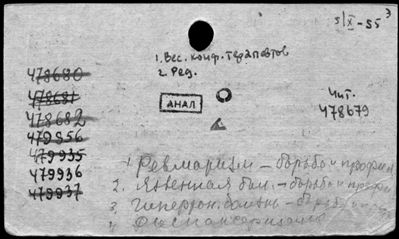 5/X-55 3
1. Вес. конф. терапевтов
2. Ред.
478680
478681
478682
479956
479935
479936
479937
АНАЛ
Чит.
478679
1. Ревматизм – борьба и профил
2. Язвенная бол. – борьба и проф
3. Гипертон. болезнь – борьба и
4.